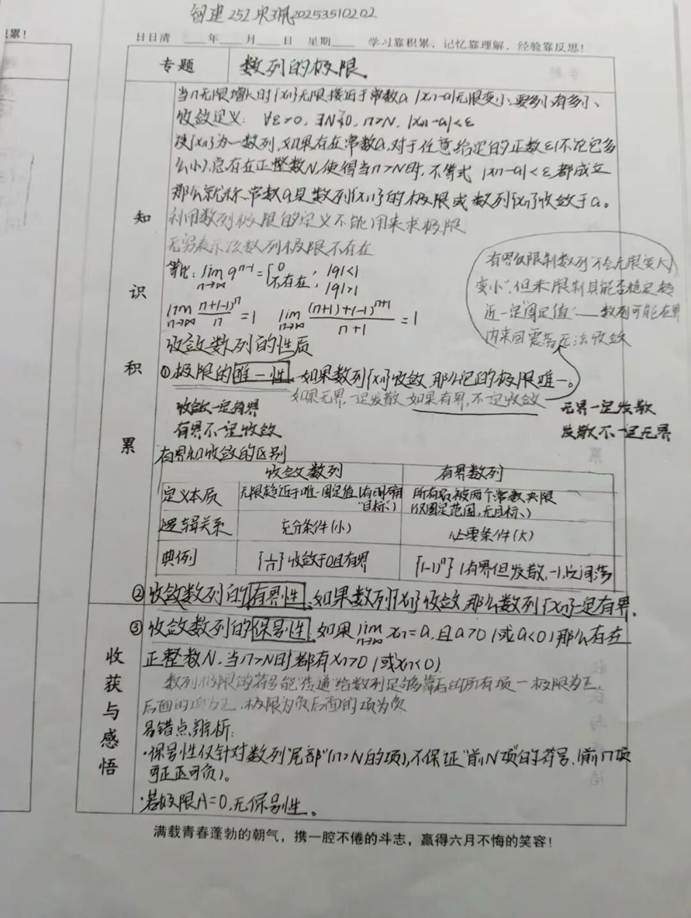 创建252 20253510202
日日清 ___年___月___日 星期___ 学习靠积累,记忆靠理解,经验靠反思!
专题 数列的极限。
知识积累
当n无限增大时{xn}无限接近于常数a |xn-a|无限变小,要多小有多小、
收敛定义: ∀ε>0, ∃N>0, n>N, |xn-a|<ε
设{xn}为一数列,如果存在常数a,对于任意给定的正数ε(不论它多
么小),总存在正整数N,使得当n>N时,不等式 |xn-a|<ε都成立
那么就称常数a是数列{xn}的极限或数列{xn}收敛于a。
利用数列极限的定义不能用来求极限
无穷表示该数列极限不存在
等比: lim n→∞ q^{n-1} = { 0, |q|<1 不存在, |q|>1
lim n→∞ n+(-1)^n / n = 1 lim n→∞ (n+1)+(-1)^{n+1} / n+1 = 1
有界仅限制数列“不会无限变大/
变小”,但未限制其能否稳定趋
近一定“固定值”——数列可能在界
内来回震荡无法收敛
收敛数列的性质
①极限的唯一性.如果数列{xn}收敛,那么它的极限唯一。
如果无界,一定发散,如果有界,不一定收敛
收敛一定有界 无界一定发散
有界不一定收敛 发散不一定无界
有界和收敛的区别
收敛数列 有界数列
定义本质 无限趋近于唯一固定值(有明确“目标”) 所有项被两个常数夹限(仅固定范围,无目标、)
逻辑关系 充分条件(小) 必要条件(大)
典例 {1/n}收敛于0且有界 {(-1)^n}(有界但发散,-1,1间荡
②收敛数列的有界性.如果数列{xn}收敛那么数列{xn}一定有界.
收获与感悟
③收敛数列的保号性.如果lim n→∞ xn=a,且a>0(或a<0)那么存在
正整数N,当n>N时,都有xn>0(或xn<0)
数列极限的符号能“传递”给数列足够靠后的所有项—极限为正,
后面的项为正,极限为负后面的项为负
易错点辨析:
·保号性仅针对数列“尾部”(n>N的项),不保证“前N项”的符号、(前n项
可正可负)。
·若极限A=0,无保号性。
满载青春蓬勃的朝气,携一腔不倦的斗志,赢得六月不悔的笑容!